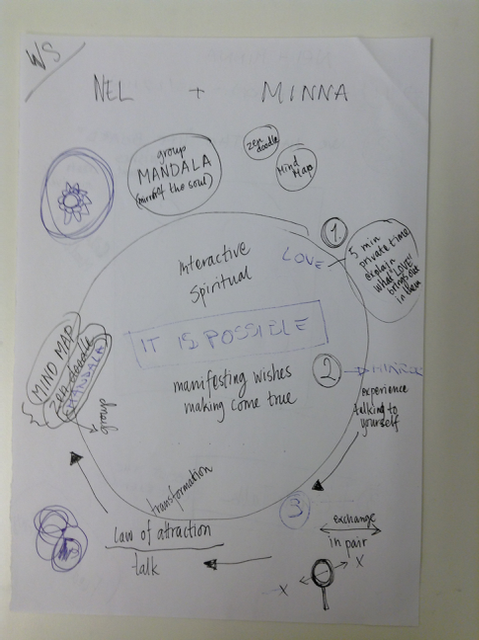 WS
NEL + MINNA
zen
doodle
group
MANDALA
(mirror of the soul)
Mind
Map
1
LOVE
5 min
private time
explain
what "LOVE"
brings out
in them
interactive
spiritual
IT IS POSSIBLE
2
manifesting wishes
making come true
experience
talking to
yourself
MIND MAP
zen doodle
MANDALA
group
transformation
3
law of attraction
talk
exchange
in pair
X
X